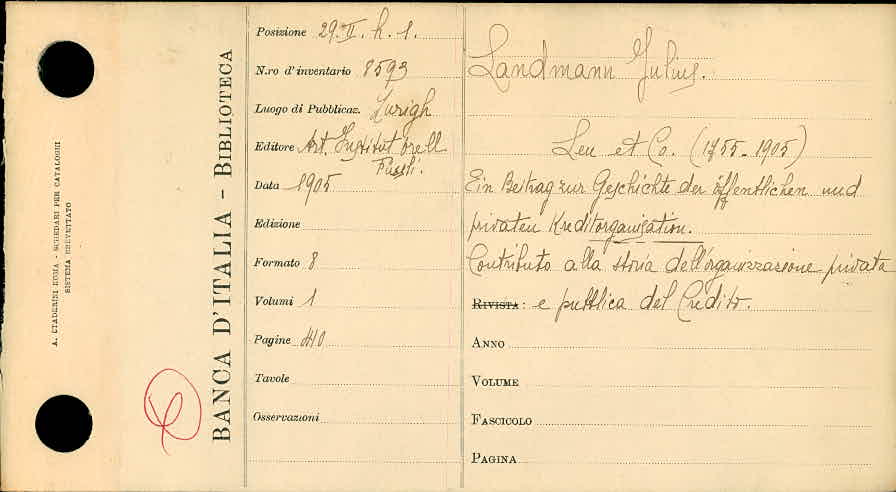 A. STADERINI ROMA - SCHEDARI PER CATALOGHI
SISTEMA BREVETTATO
BANCA D'ITALIA - BIBLIOTECA
Posizione 29. II. h. 1.
N.ro d'inventario 8593
Luogo di Pubblicaz. Zurigh
Editore Art. Institut Orell
Füssli.
Data 1905
Edizione
Formato 8
Volumi 1
Pagine
Tavole
Osservazioni
Landmann Julius.
Leu et Co. (1755-1905)
Ein Beitrag zur Geschichte der öffentlichen und
privaten Kreditorganisation.
Contributo alla storia dell'organizzazione privata
RIVISTA: e pubblica del Credito.
ANNO
VOLUME
FASCICOLO
PAGINA